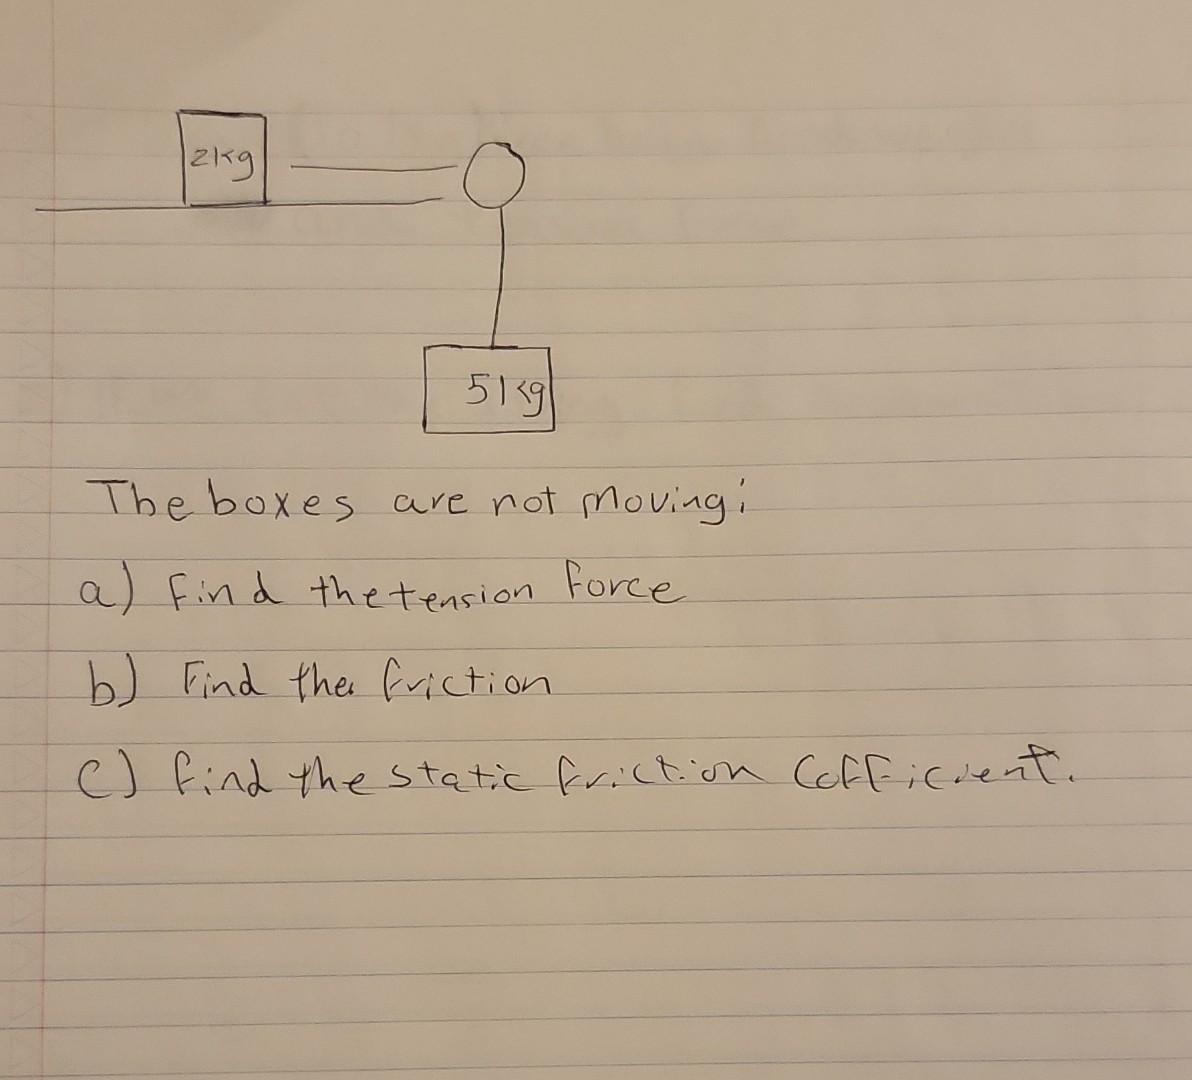 2kg
5kg
The boxes are not moving;
a) Find the tension force
b) Find the friction
c) find the static friction Cofficient.